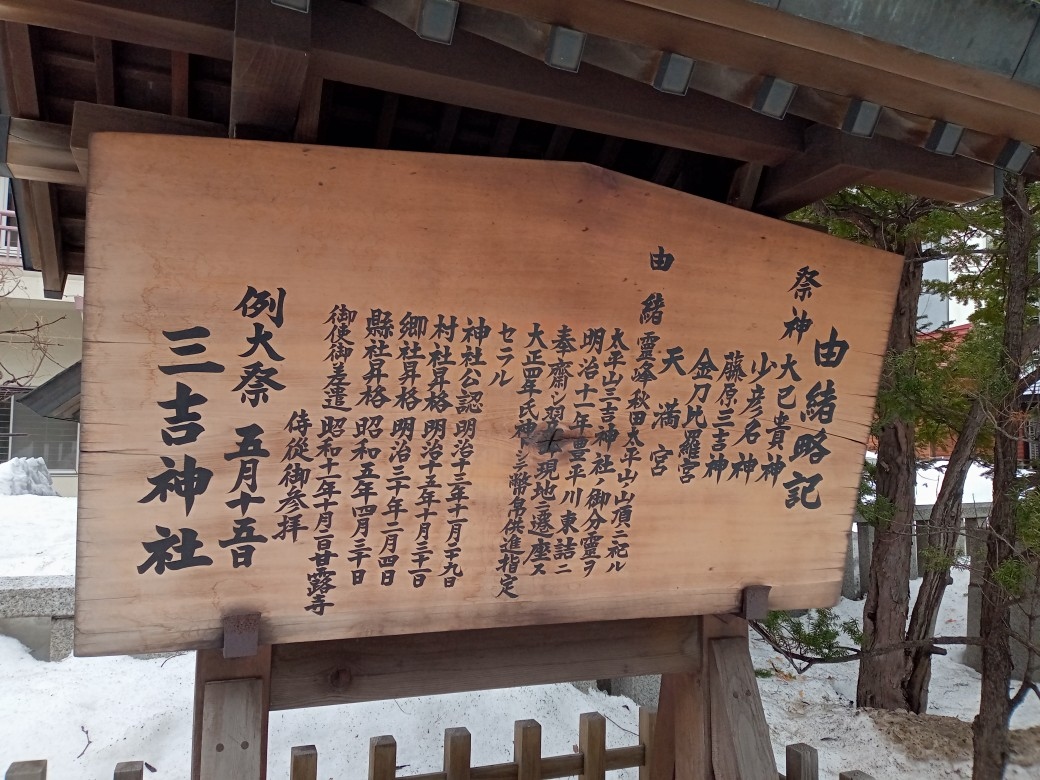 由緒略記
祭神 大已貴神
少彦名神
藤原三吉神
金刀比羅宮
天満宮
由緒 霊峰秋田太平山山頂ニ祀ル
太平山三吉神社ノ御分霊ヲ
明治十一年豊平川東詰ニ
奉齋シ翌年現地ニ遷座ス
大正四年氏神トシ幣帛供進指定
セラル
神社公認 明治十三年十一月二十九日
村社昇格 明治十五年十月三十一日
郷社昇格 明治三十年二月四日
縣社昇格 昭和五年四月三十日
御使御差遣 昭和十一年十月二日甘露寺
侍従御参拝
例大祭 五月十五日
三吉神社